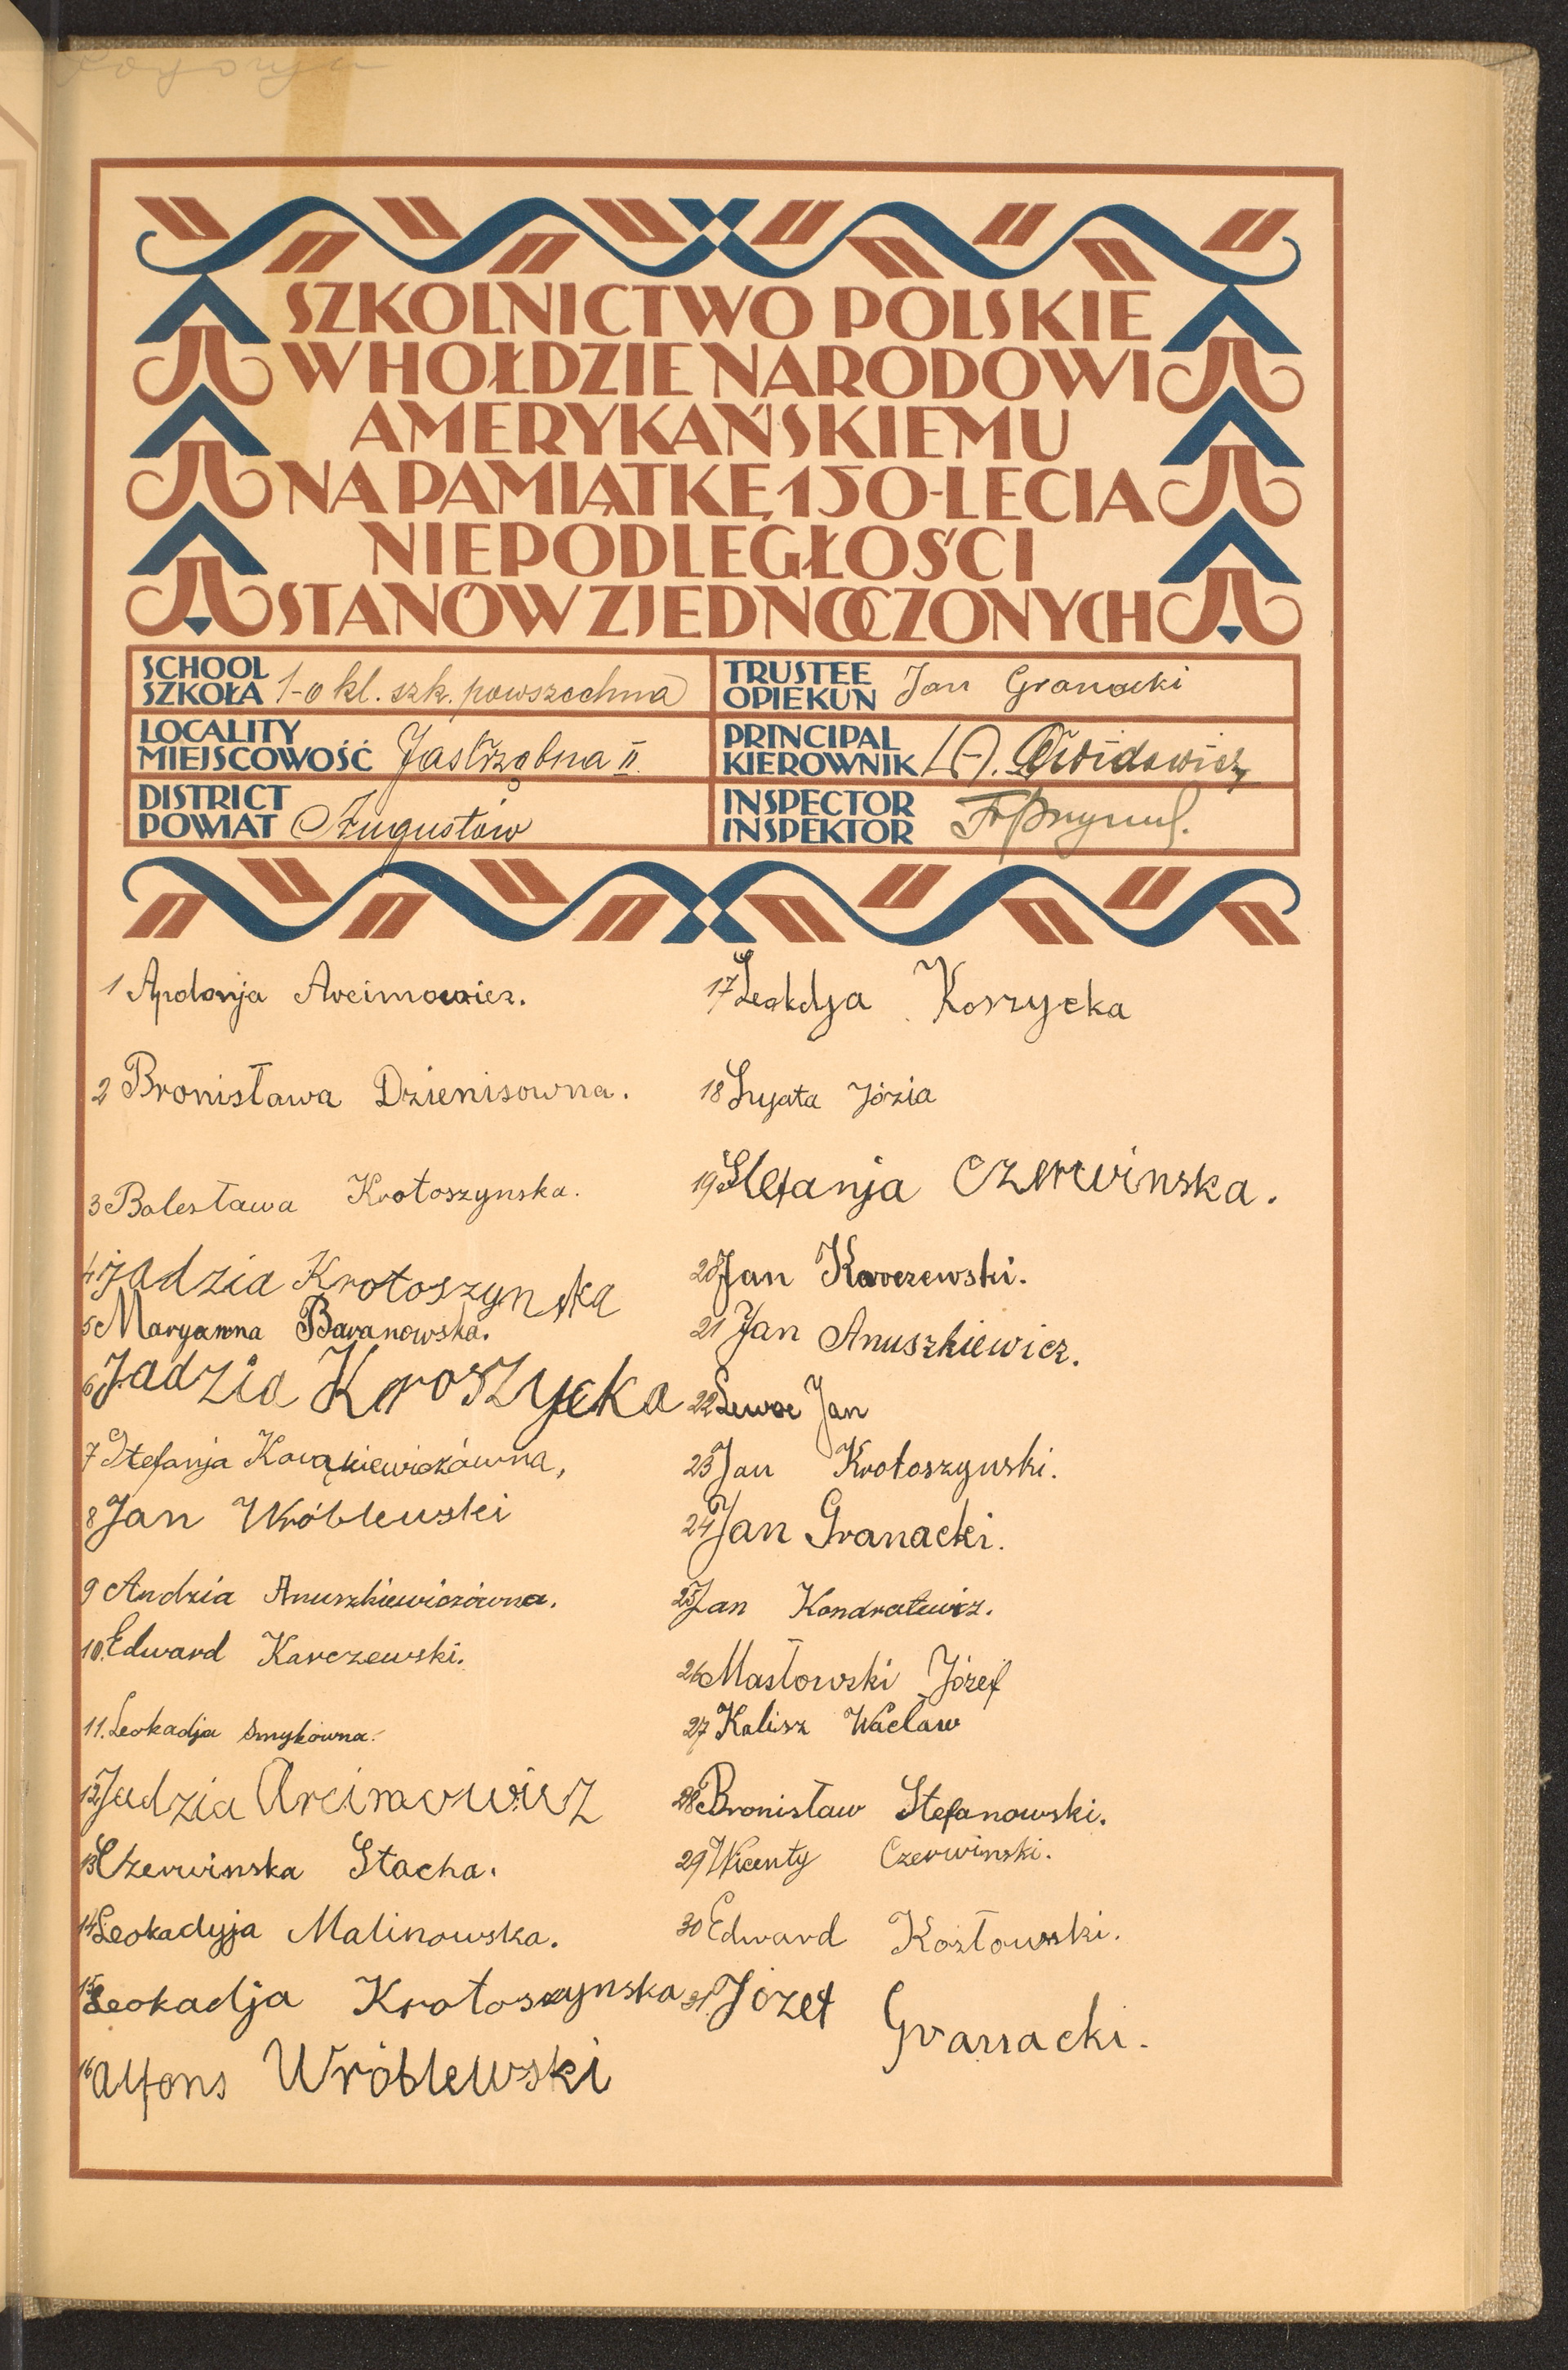 SZKOLNICTWO POLSKIE
W HOŁDZIE NARODOWI
AMERYKAŃSKIEMU
NA PAMIĄTKĘ 150-LECIA
NIEPODLEGŁOŚCI
STANÓW ZJEDNOCZONYCH
SCHOOL
SZKOŁA 1-o kl. szk. powszechna
LOCALITY
MIEJSCOWOŚĆ Jastrzębna II
DISTRICT
POWIAT Augustów
TRUSTEE
OPIEKUN Jan Granacki
PRINCIPAL
KIEROWNIK
INSPECTOR
INSPEKTOR
1 Apolonja Arcimowicz.
2 Bronisława Dzienisowna.
3 Bolesława Krotoszynska.
4 Jadzia Krotoszynska
5 Maryanna Baranowska.
6 Jadzia Kroszycka
7 Stefanja
8 Jan Wróblewski
9 Andzia Anuszkiewiczówna.
10. Edward Karczewski.
11. Leokadja Smykówna.
12 Jadzia Arcimowicz
13 Czerwinska Stacha.
14 Leokadyja Malinowska.
15 Leokadja Krotoszynska
16 Alfons Wróblewski
17 Leokdja Koszycka
18 Józia
19 Stefanja Czerwinska.
20 Jan Karczewski.
21 Jan Anuszkiewicz.
22 Jan
23 Jan Krotoszynski.
24 Jan Granacki.
25 Jan Kondratewicz.
26 Masłowski Józef
27 Kalisz Wacław
28 Bronisław Stefanowski.
29 Wicenty Czerwinski.
30 Edward Kozłowski.
31. Józef Granacki.